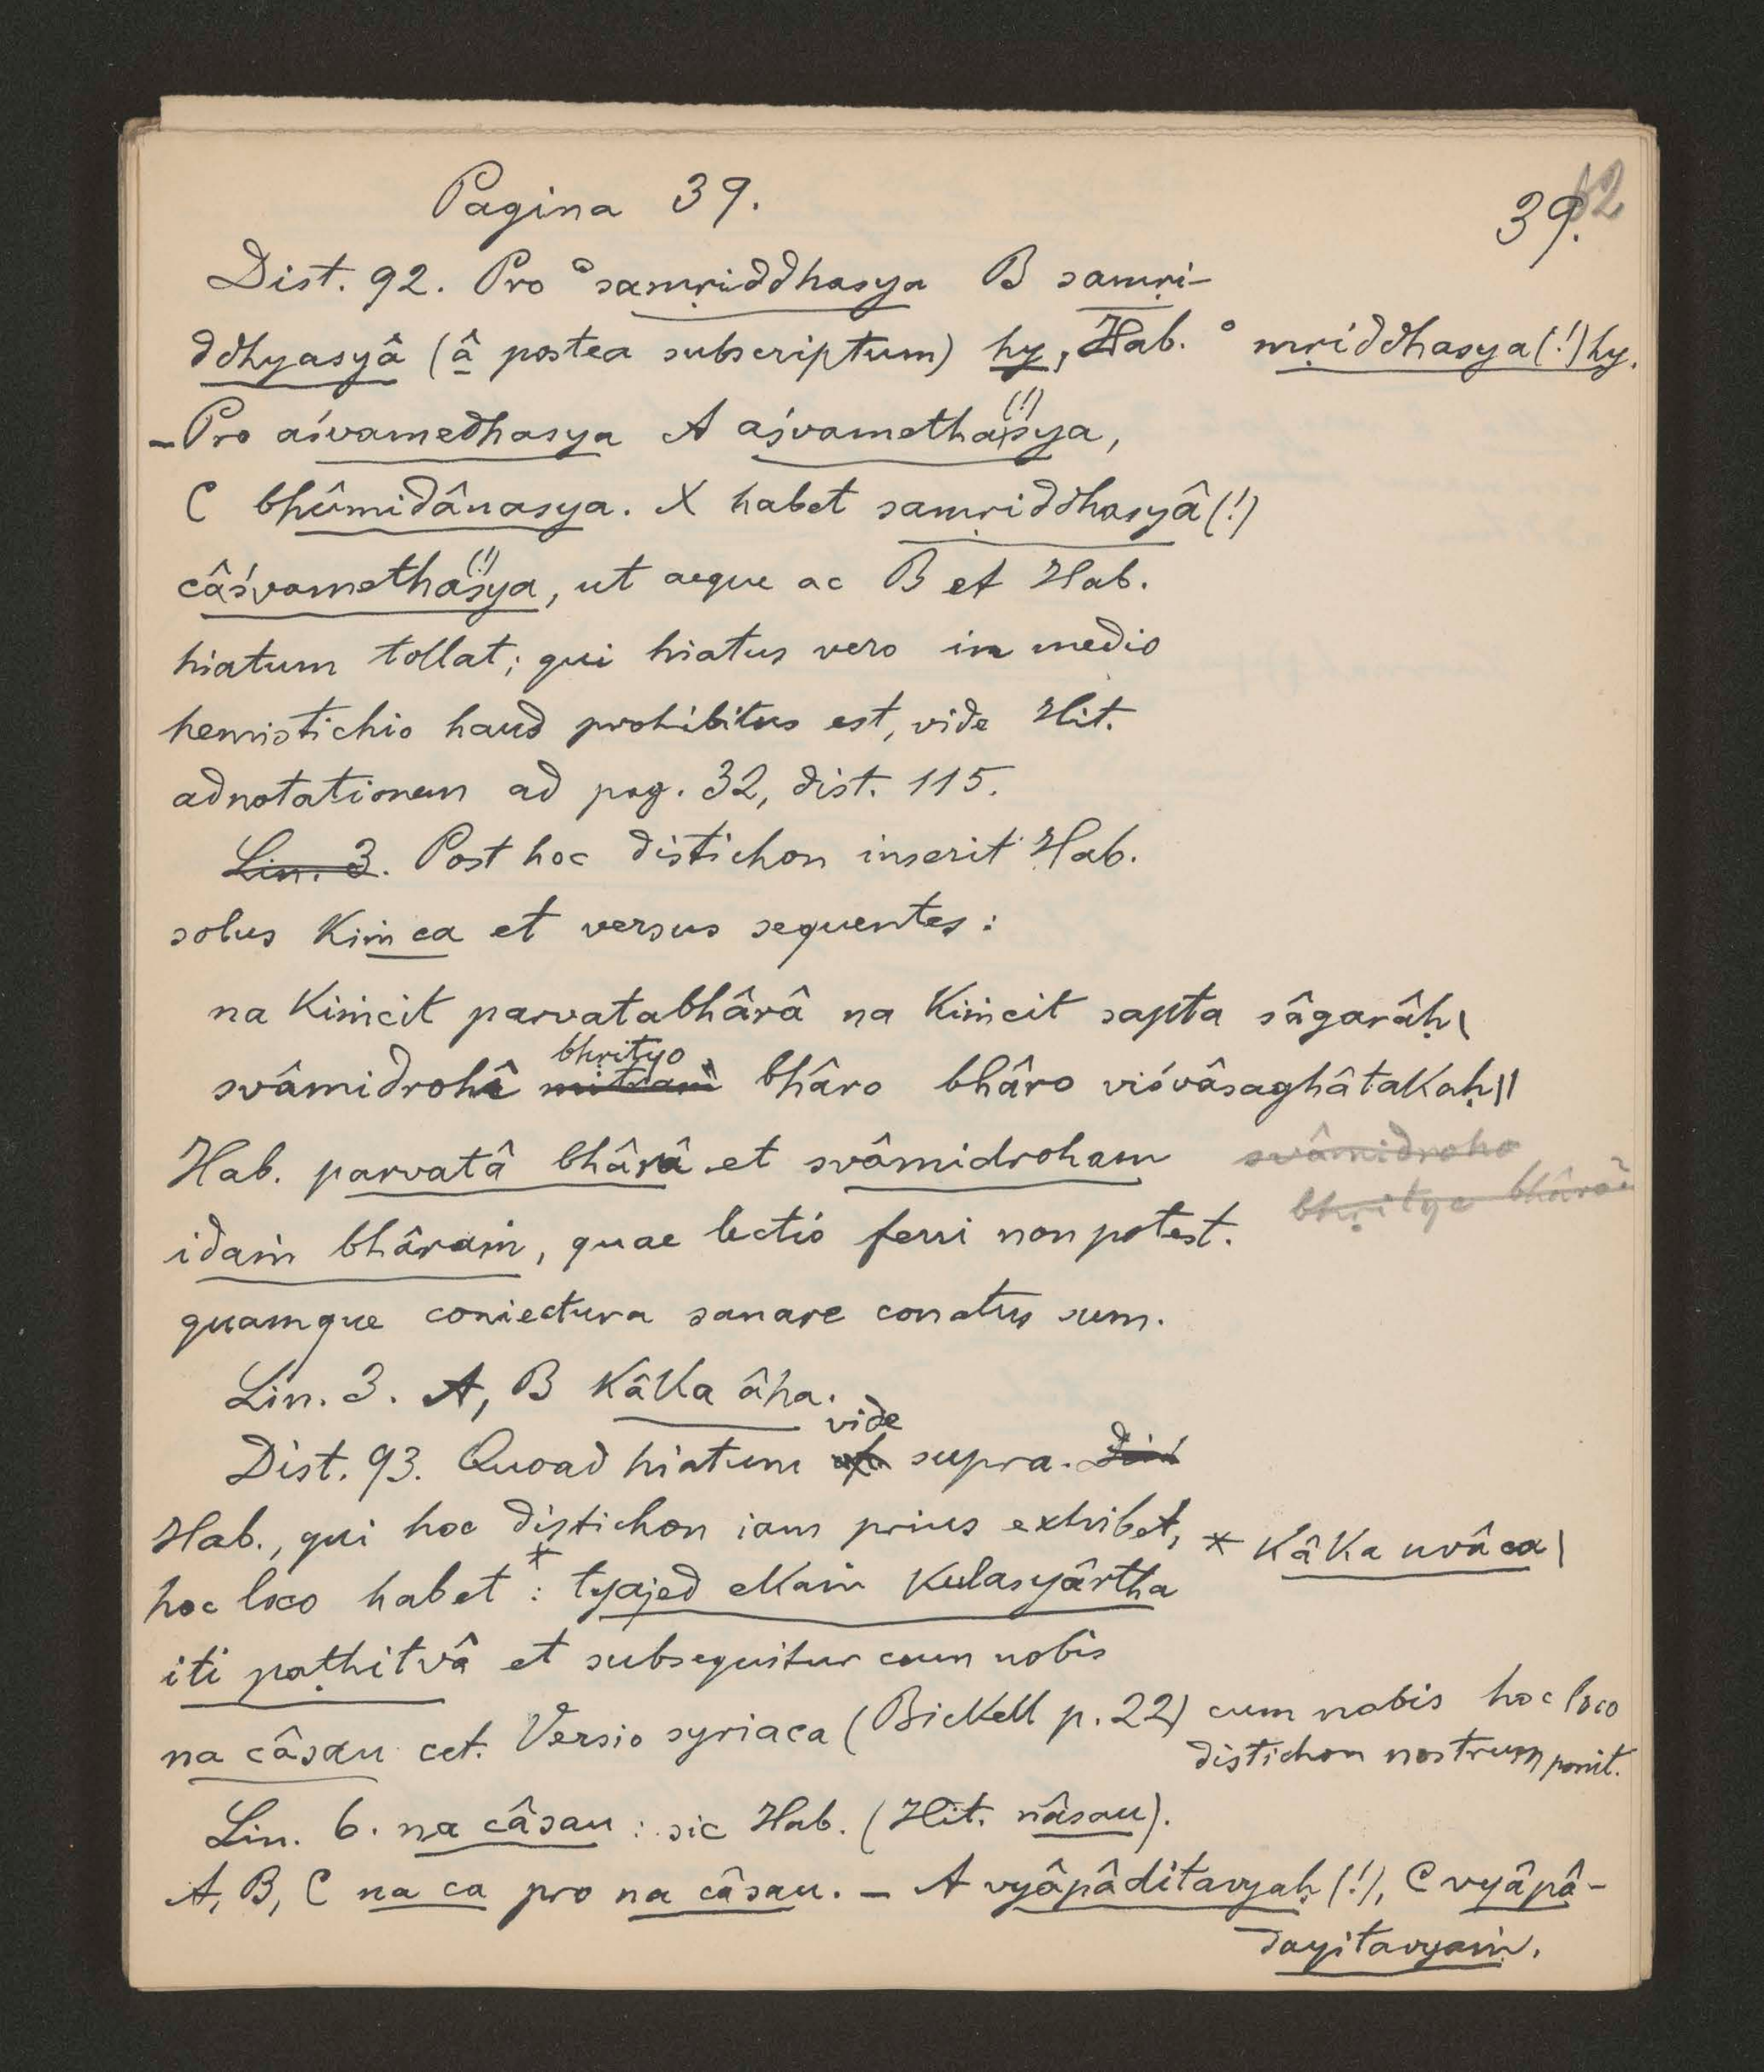 Pagina 39.
39.
Dist. 92. Pro °samṛiddhasya B samṛi-
ddhyasyâ (â postea subscriptum) hy, Hab. °mṛiddhasya(!) hy.
– Pro aśvamedhasya A aśvamethasya(!),
C bhûmidânasya. X habet samṛiddhasyâ (!)
câśvamethasya(!), ut aeque ac B et Hab.
hiatum tollat; qui hiatus vero in medio
hemistichio haud prohibitus est, vide Hit.
adnotationem ad pag. 32, dist. 115.
Lin. 3. Post hoc distichon inserit Hab.
solus Kiṁ ca et versus sequentes:
na Kiṁcit parvatabhârâ na Kiṁcit sapta sâgarâḥ |
bhrityo
svâmidrohî mitraṁ bhâro bhâro viśvâsaghâtakaḥ ||
Hab. parvatâ bhârâ et svâmidroham svâmidroho
bhṛitye
idaṁ bhâraṁ, quae lectio ferri non potest.
quamque coniectura sanare conatus sum.
Lin. 3. A, B Kâka âha.
vide
Dist. 93. Quoad hiatum supra.
Hab., qui hoc distichon iam prius exhibet, * Kâka uvâca |
hoc loco habet *: tyajed ekaṁ kulasyârtha
iti paṭhitvâ et subsequitur cum nobis
na câsau cet. Versio syriaca (Bickell p. 22) cum nobis hoc loco
distichon nostrum ponit.
Lin. 6. na câsau: sic Hab. (Hit. nâsau).
A, B, C na ca pro na câsau. – A vyâpâditavyaḥ (!), C vyâpâ-
dayitavyaṁ.